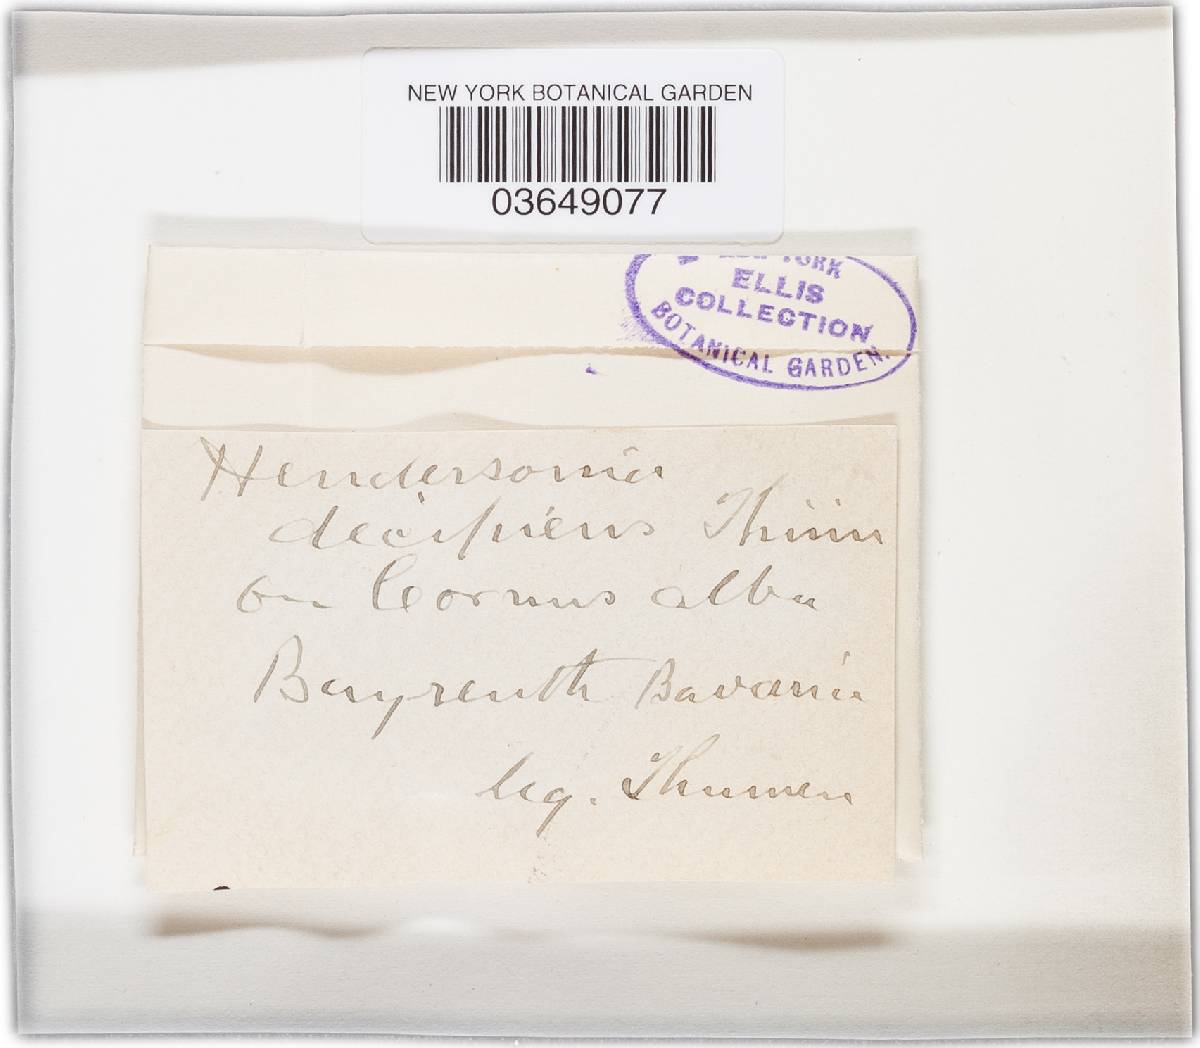 NEW YORK BOTANICAL GARDEN
03649077
NEW YORK
ELLIS
COLLECTION
BOTANICAL GARDEN.
Hendersonia
decipiens Thüm
on Cornus alba
Bayreuth Bavaria
leg. Thumen